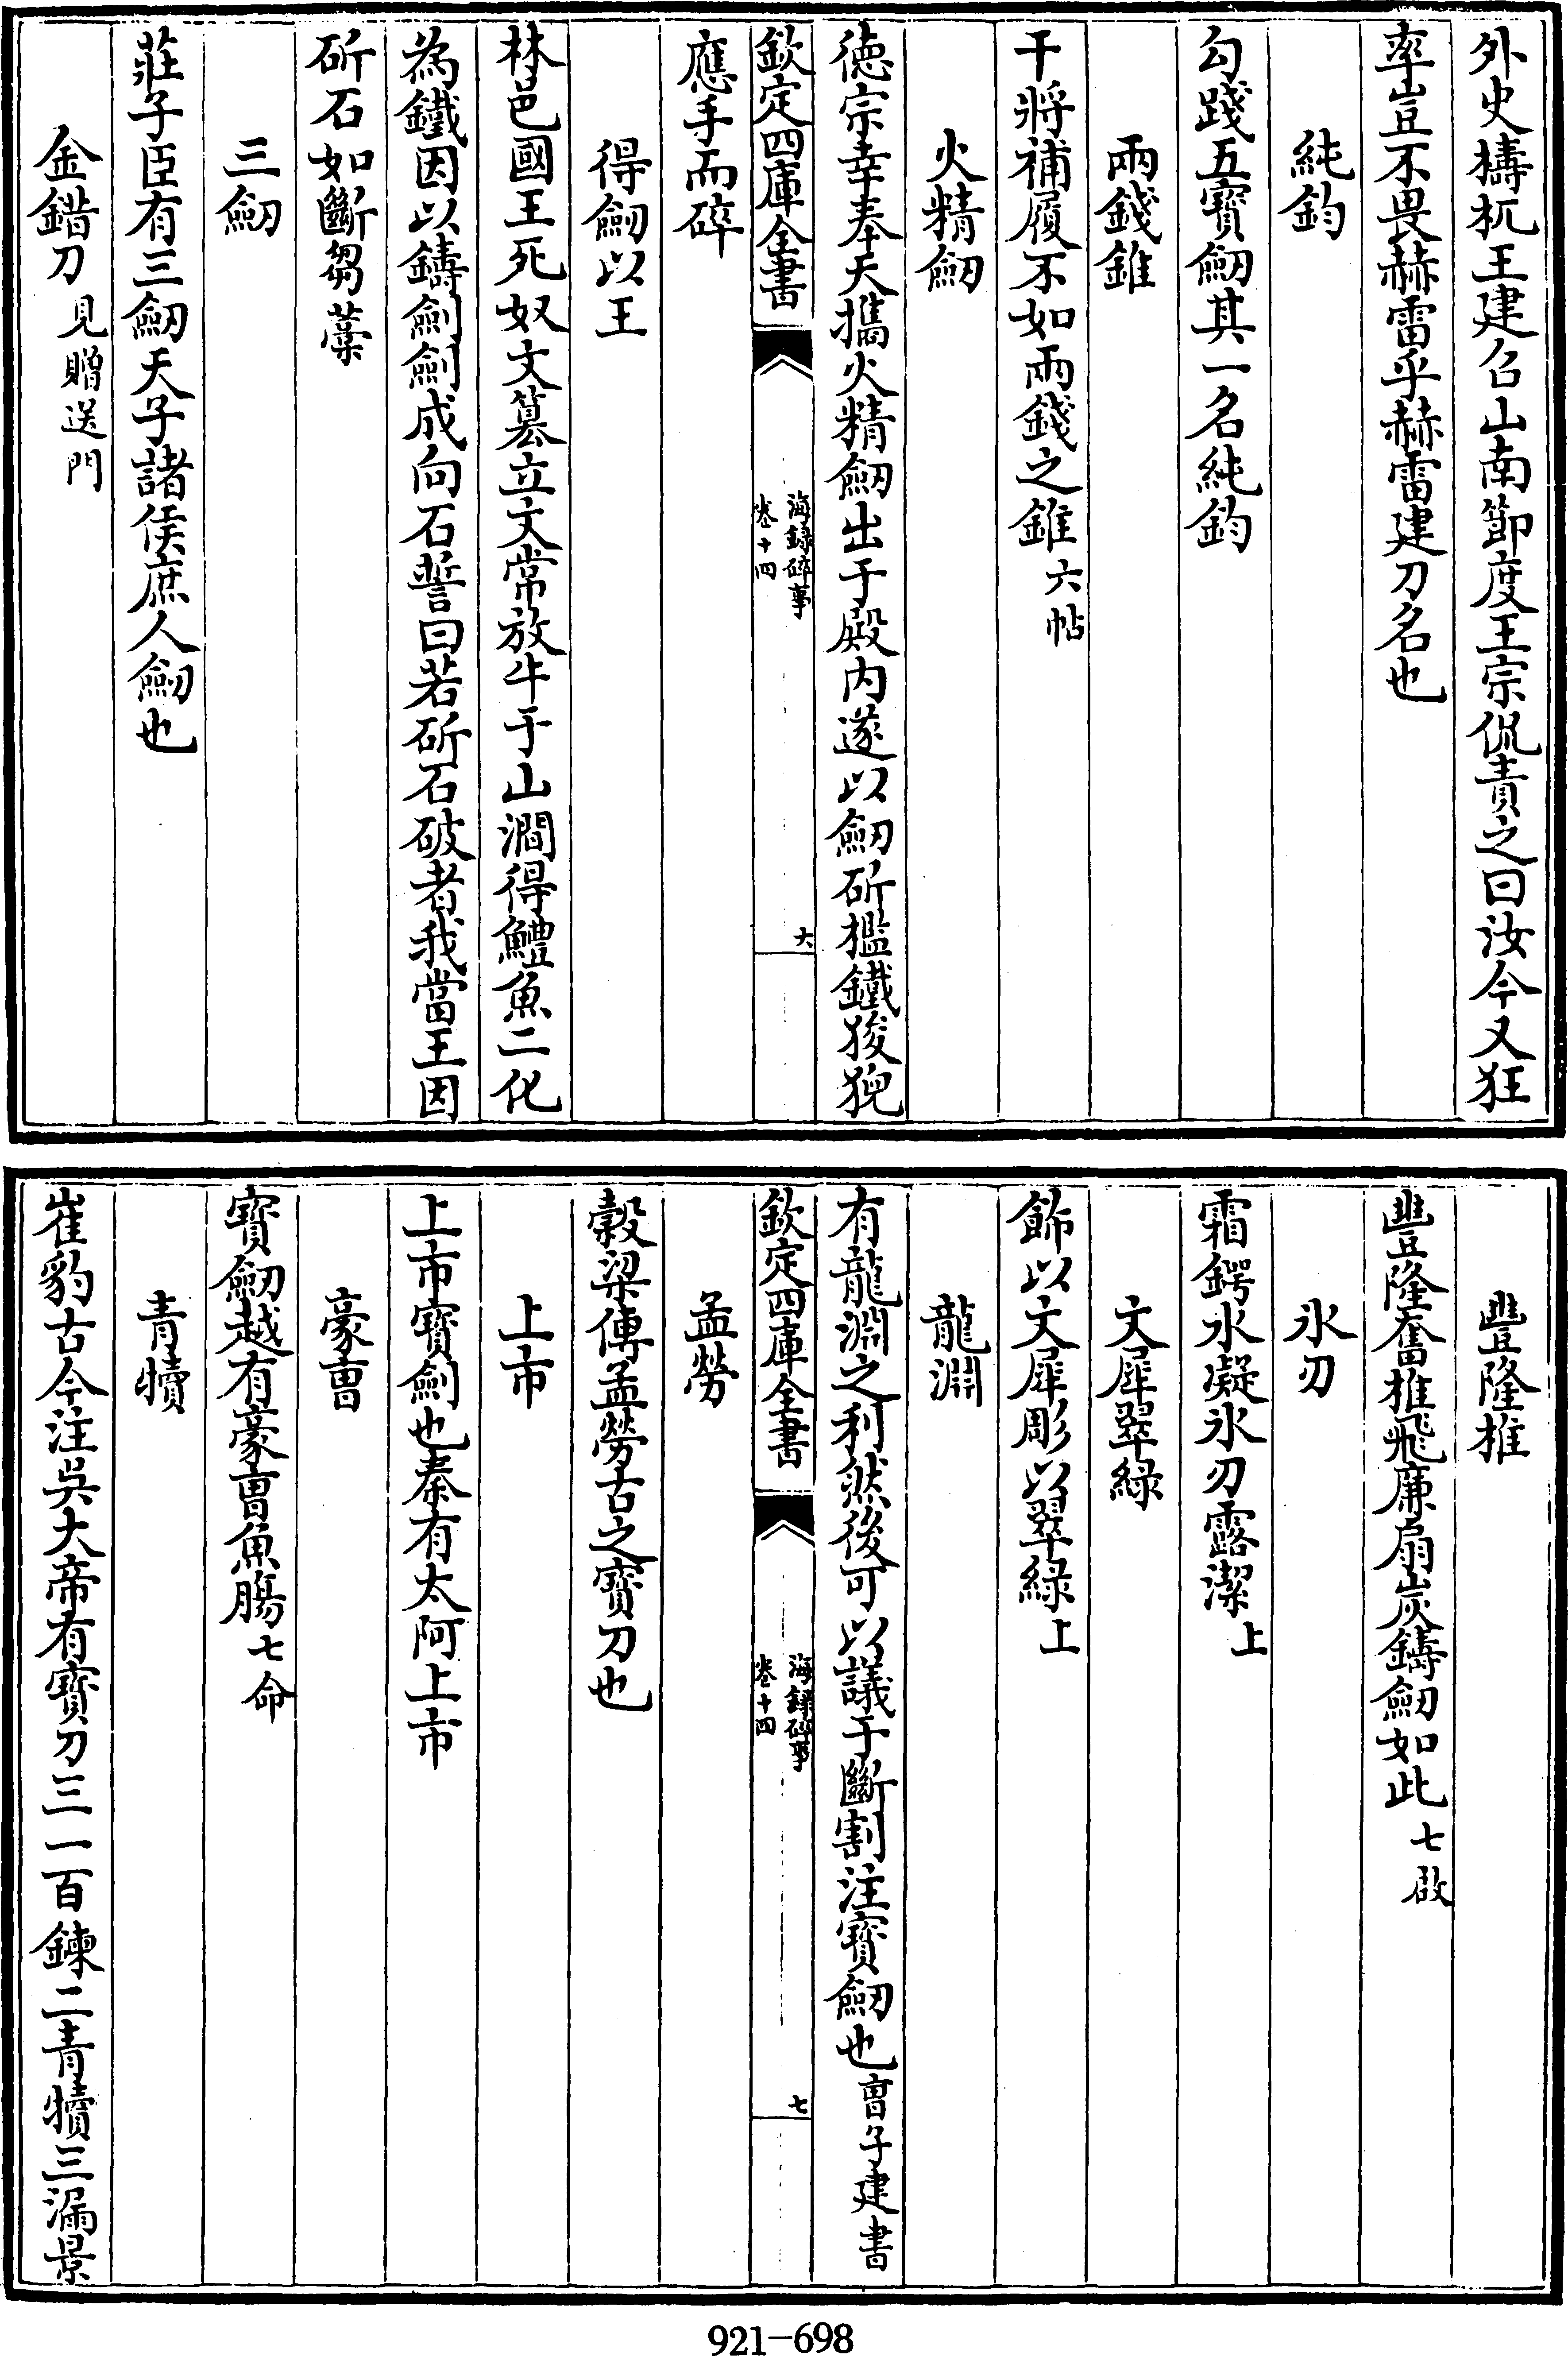 外史檮杌王建召山南節度王宗侃責之曰汝今又狂
率豈不畏赫雷乎赫雷建刀名也
純鈞
勾踐五寶劒其一名純鈞
兩錢錐
干將補履不如兩錢之錐六帖
火精劒
德宗幸奉天攜火精劒出于殿內遂以劒斫檻鐵狻猊
欽定四庫全書
海錄碎事
卷十四
六
應手而碎
得劒以王
林邑國王死奴文篡立文常放牛于山澗得鱧魚二化
為鐵因以鑄劍劍成向石誓曰若斫石破者我當王因
斫石如斷芻藁
三劒
莊子臣有三劒天子諸侯庶人劒也
金錯刀見贈送門
豐隆椎
豐隆奮椎飛廉扇炭鑄劒如此七啟
氷刃
霜鍔水凝氷刃露潔上
文犀翠綠
飾以文犀彫以翠綠上
龍淵
有龍淵之利然後可以議于斷割注寶劒也曺子建書
欽定四庫全書
海錄碎事
卷十四
七
孟勞
穀梁傳孟勞古之寶刀也
上市
上市寶劍也秦有太阿上市
豪曺
寶劒越有豪曺魚腸七命
青犢
崔豹古今注吳大帝有寶刀三一百鍊二青犢三漏景
921-698